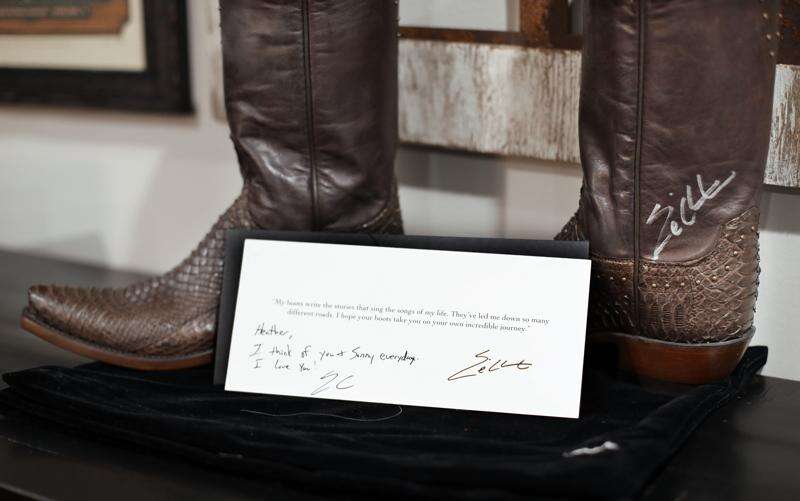 "My boots write the stories that sing the songs of my life. They've led me down so many
different roads. I hope your boots take you on your own incredible journey."
Heather,
I think of you & Sunny everyday.
I love you!
EC